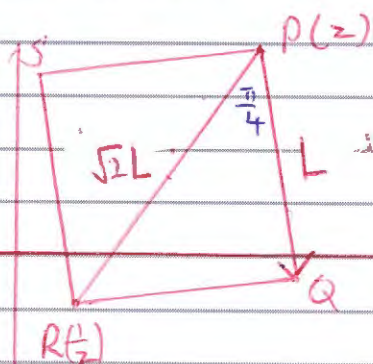 S P(z)
π/4
√2L L
Q
R(1/z)